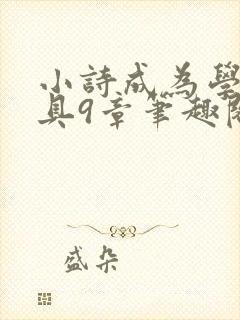 小詩成為學
具9章筆趣閣
盛朵